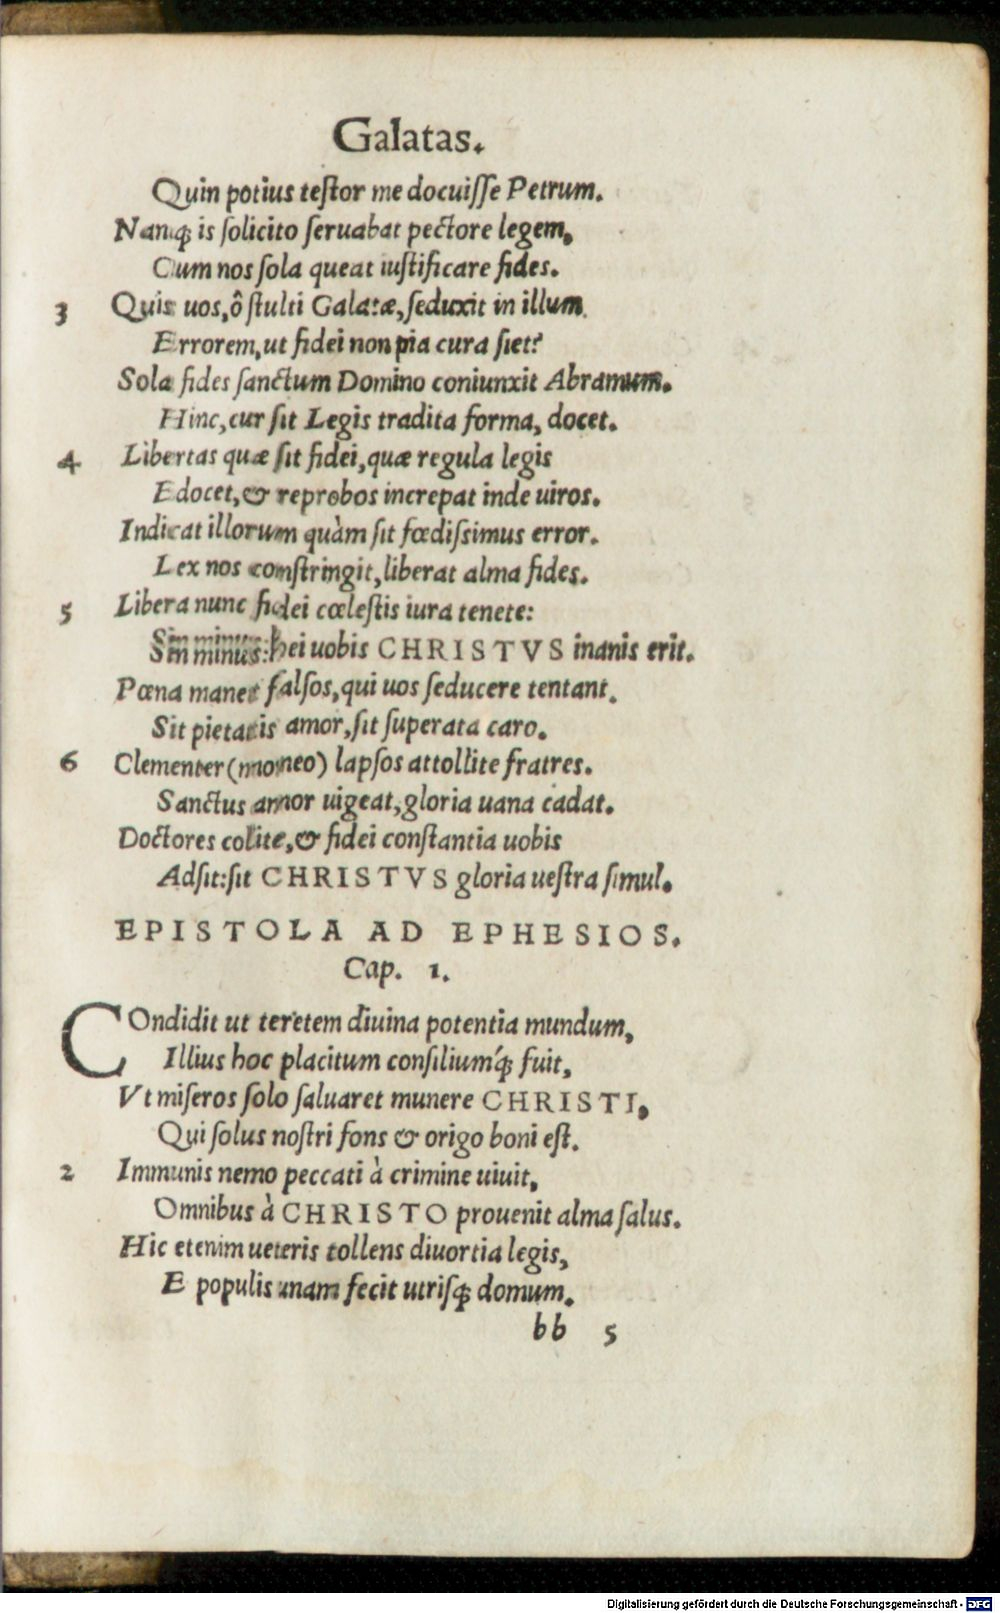 Galatas.
Quin potius teſtor me docuiſſe Petrum.
Namq́; is ſolicito ſeruabat pectore legem,
Cum nos ſola queat iuſtificare fides.
3 Quis uos, ô ſtulti Galatæ, ſeduxit in illum
Errorem, ut fidei non pia cura ſiet?
Sola fides ſanctum Domino coniunxit Abramum.
Hinc, cur ſit Legis tradita forma, docet.
4 Libertas quæ ſit fidei, quæ regula legis
Edocet, & reprobos increpat inde uiros.
Indicat illorum quàm ſit fœdiſsimus error.
Lex nos conſtringit, liberat alma fides.
5 Libera nunc fidei cœleſtis iura tenete:
Sin minus: hei uobis CHRISTVS inanis erit.
Pœna manet falſos, qui uos ſeducere tentant.
Sit pietatis amor, ſit ſuperata caro.
6 Clementer (moneo) lapſos attollite fratres.
Sanctus amor uigeat, gloria uana cadat.
Doctores colite, & fidei conſtantia uobis
Adſit: ſit CHRISTVS gloria ueſtra ſimul.
EPISTOLA AD EPHESIOS.
Cap. 1.
COndidit ut teretem diuina potentia mundum,
Illius hoc placitum conſiliumq́; fuit,
Vt miſeros ſolo ſaluaret munere CHRISTI,
Qui ſolus noſtri fons & origo boni eſt.
2 Immunis nemo peccati à crimine uiuit,
Omnibus à CHRISTO prouenit alma ſalus.
Hic etenim ueteris tollens diuortia legis,
E populis unam fecit utriſq; domum.
bb 5
Digitalisierung gefördert durch die Deutsche Forschungsgemeinschaft - DFG